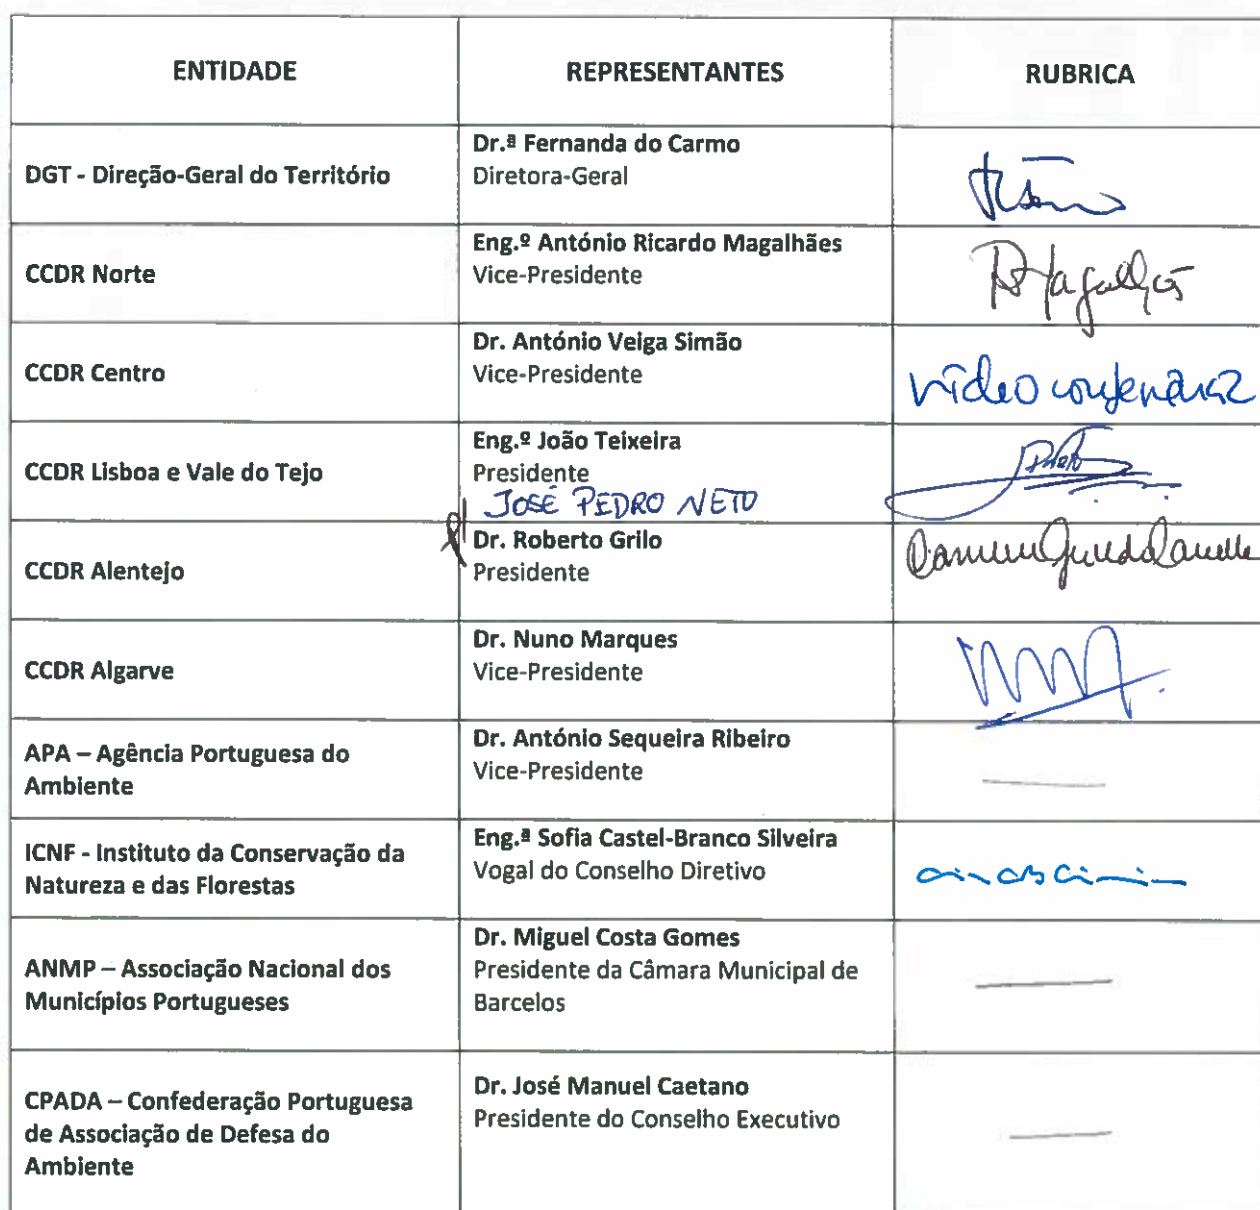 ENTIDADE
REPRESENTANTES
RUBRICA
DGT - Direção-Geral do Território
Dr.ª Fernanda do Carmo
Diretora-Geral
CCDR Norte
Eng.º António Ricardo Magalhães
Vice-Presidente
Magalhães
CCDR Centro
Dr. António Veiga Simão
Vice-Presidente
videoconferência
CCDR Lisboa e Vale do Tejo
Eng.º João Teixeira
Presidente
JOSÉ PEDRO NETO
CCDR Alentejo
Dr. Roberto Grilo
Presidente
CCDR Algarve
Dr. Nuno Marques
Vice-Presidente
APA – Agência Portuguesa do
Ambiente
Dr. António Sequeira Ribeiro
Vice-Presidente
ICNF - Instituto da Conservação da
Natureza e das Florestas
Eng.ª Sofia Castel-Branco Silveira
Vogal do Conselho Diretivo
ANMP – Associação Nacional dos
Municípios Portugueses
Dr. Miguel Costa Gomes
Presidente da Câmara Municipal de
Barcelos
CPADA – Confederação Portuguesa
de Associação de Defesa do
Ambiente
Dr. José Manuel Caetano
Presidente do Conselho Executivo